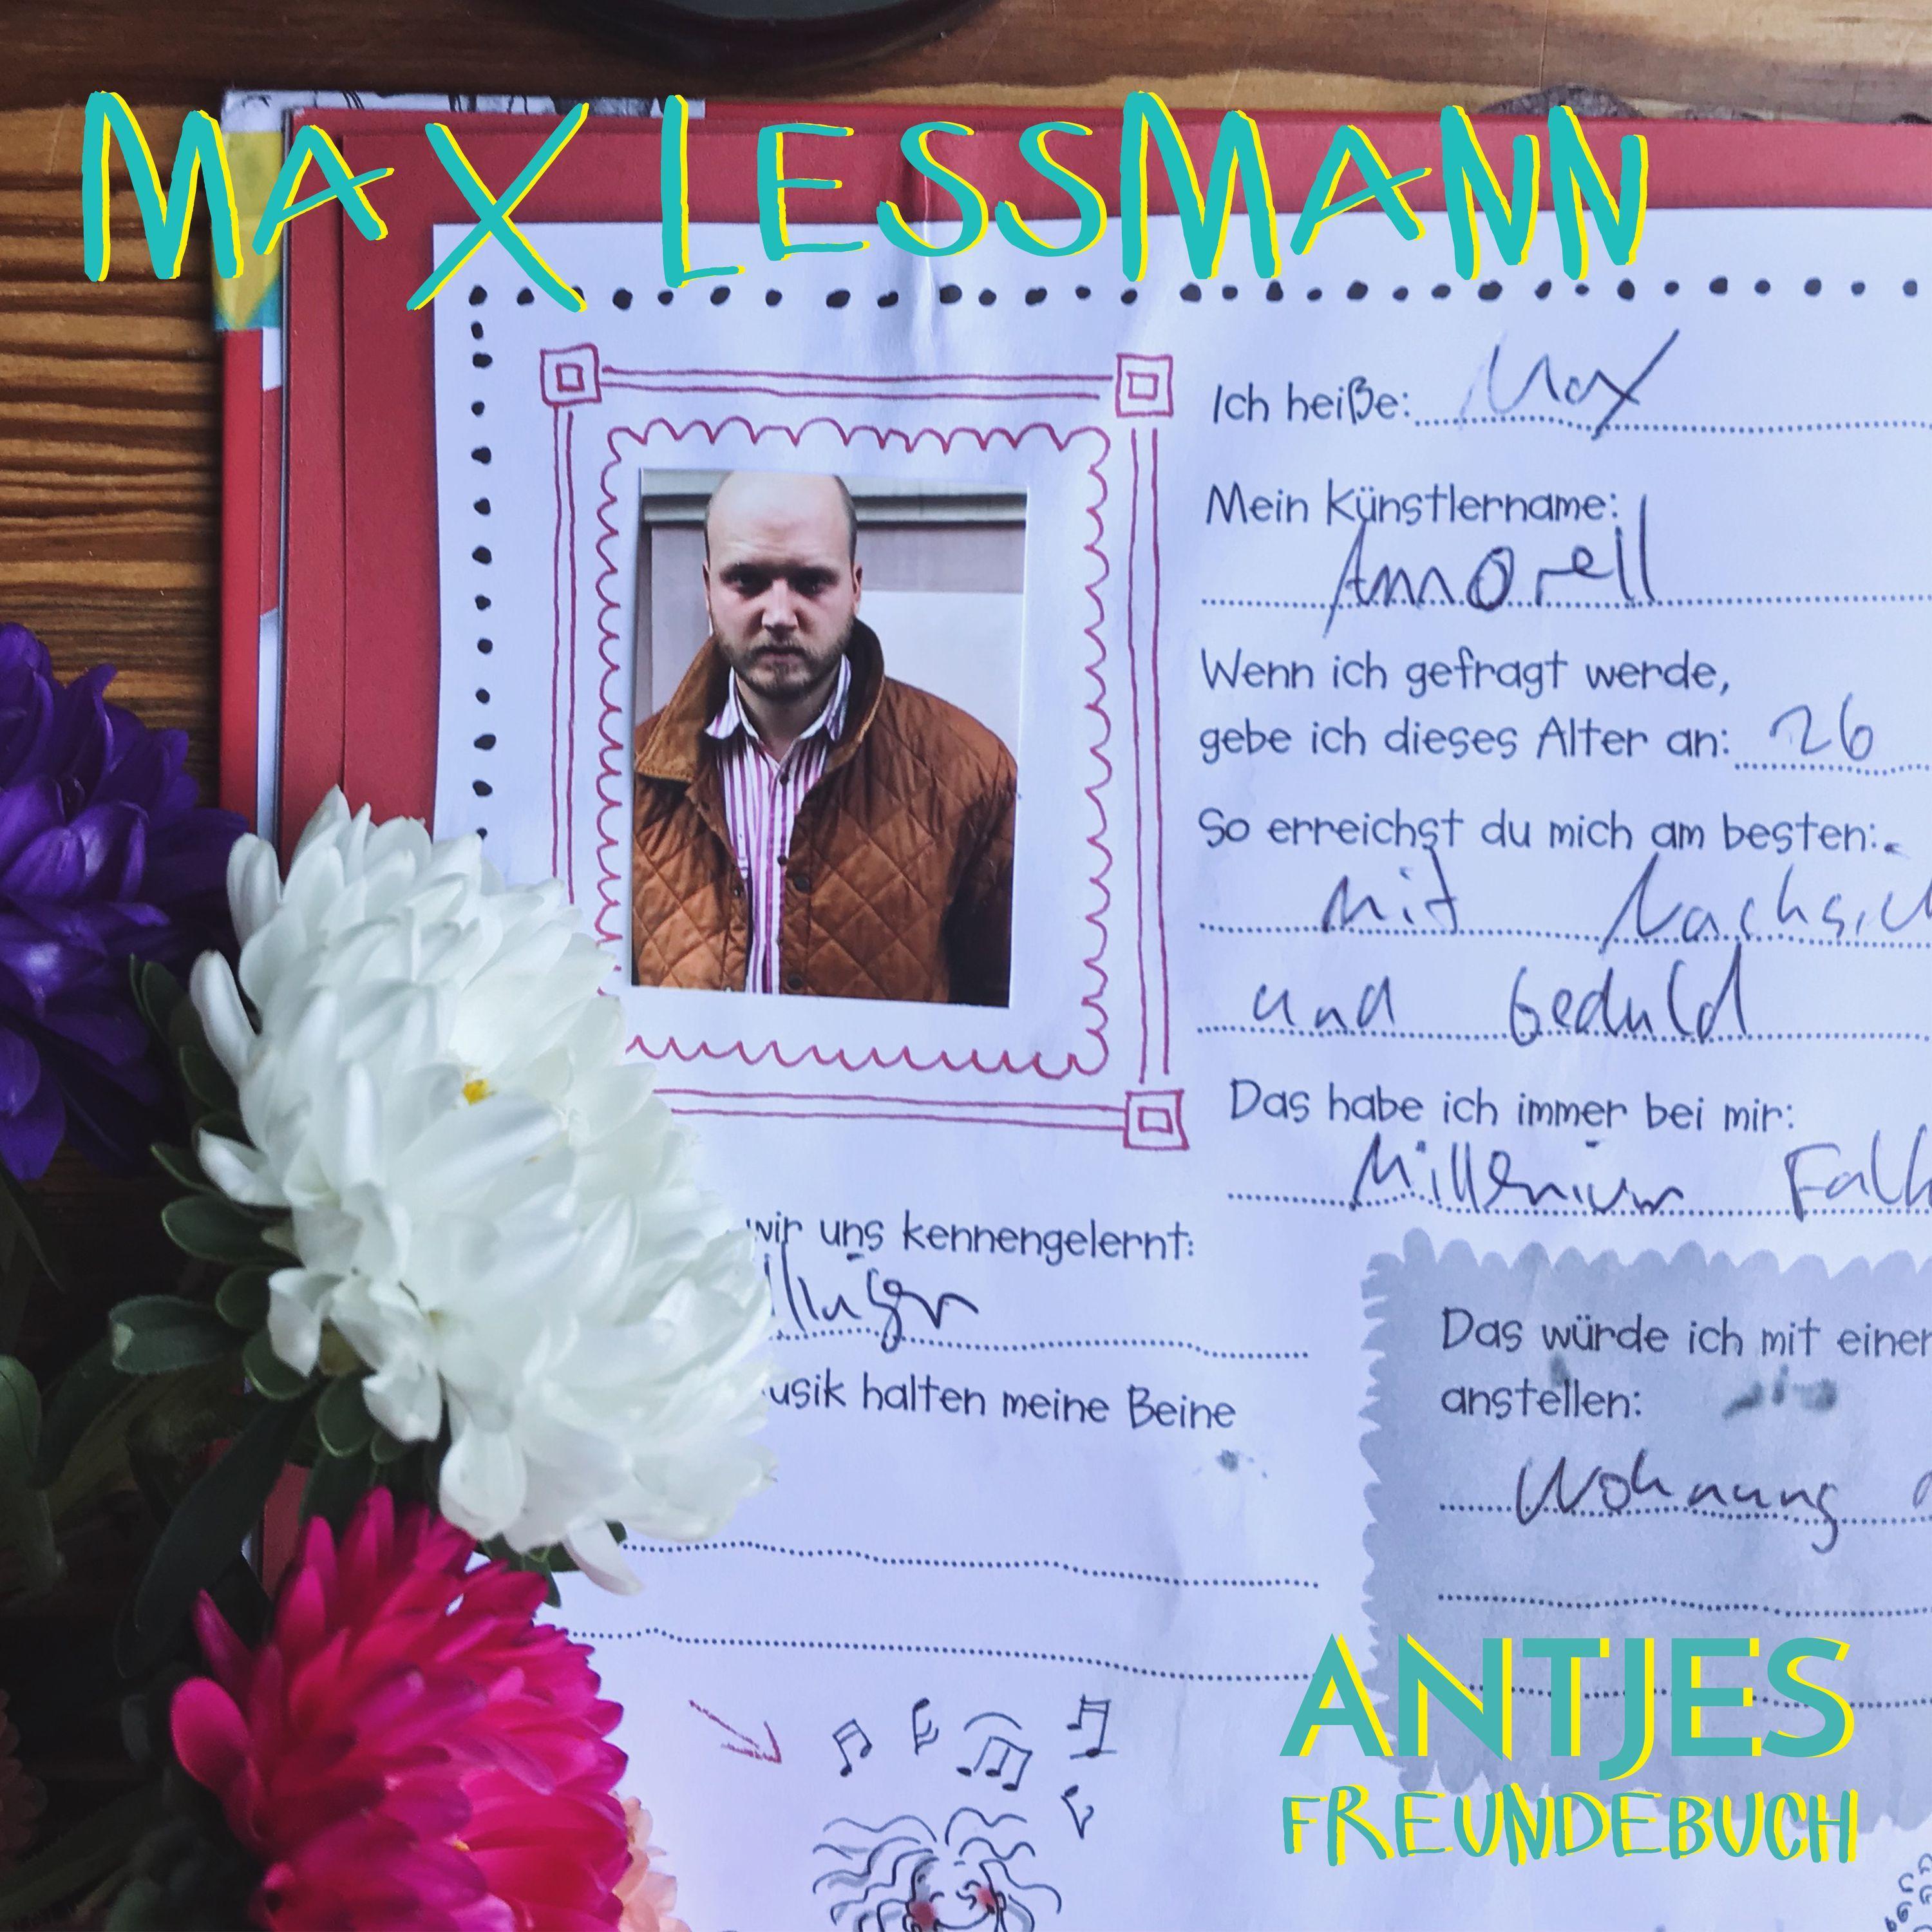 MAX LESSMANN
Ich heiße: Max
Mein Künstlername:
Amorell
Wenn ich gefragt werde,
gebe ich dieses Alter an: 26
So erreichst du mich am besten:
mit
und Geduld
Das habe ich immer bei mir:
Millenium
wir uns kennengelernt:
usik halten meine Beine
Das würde ich mit einer
anstellen:
Wohnung
ANTJES
FREUNDEBUCH